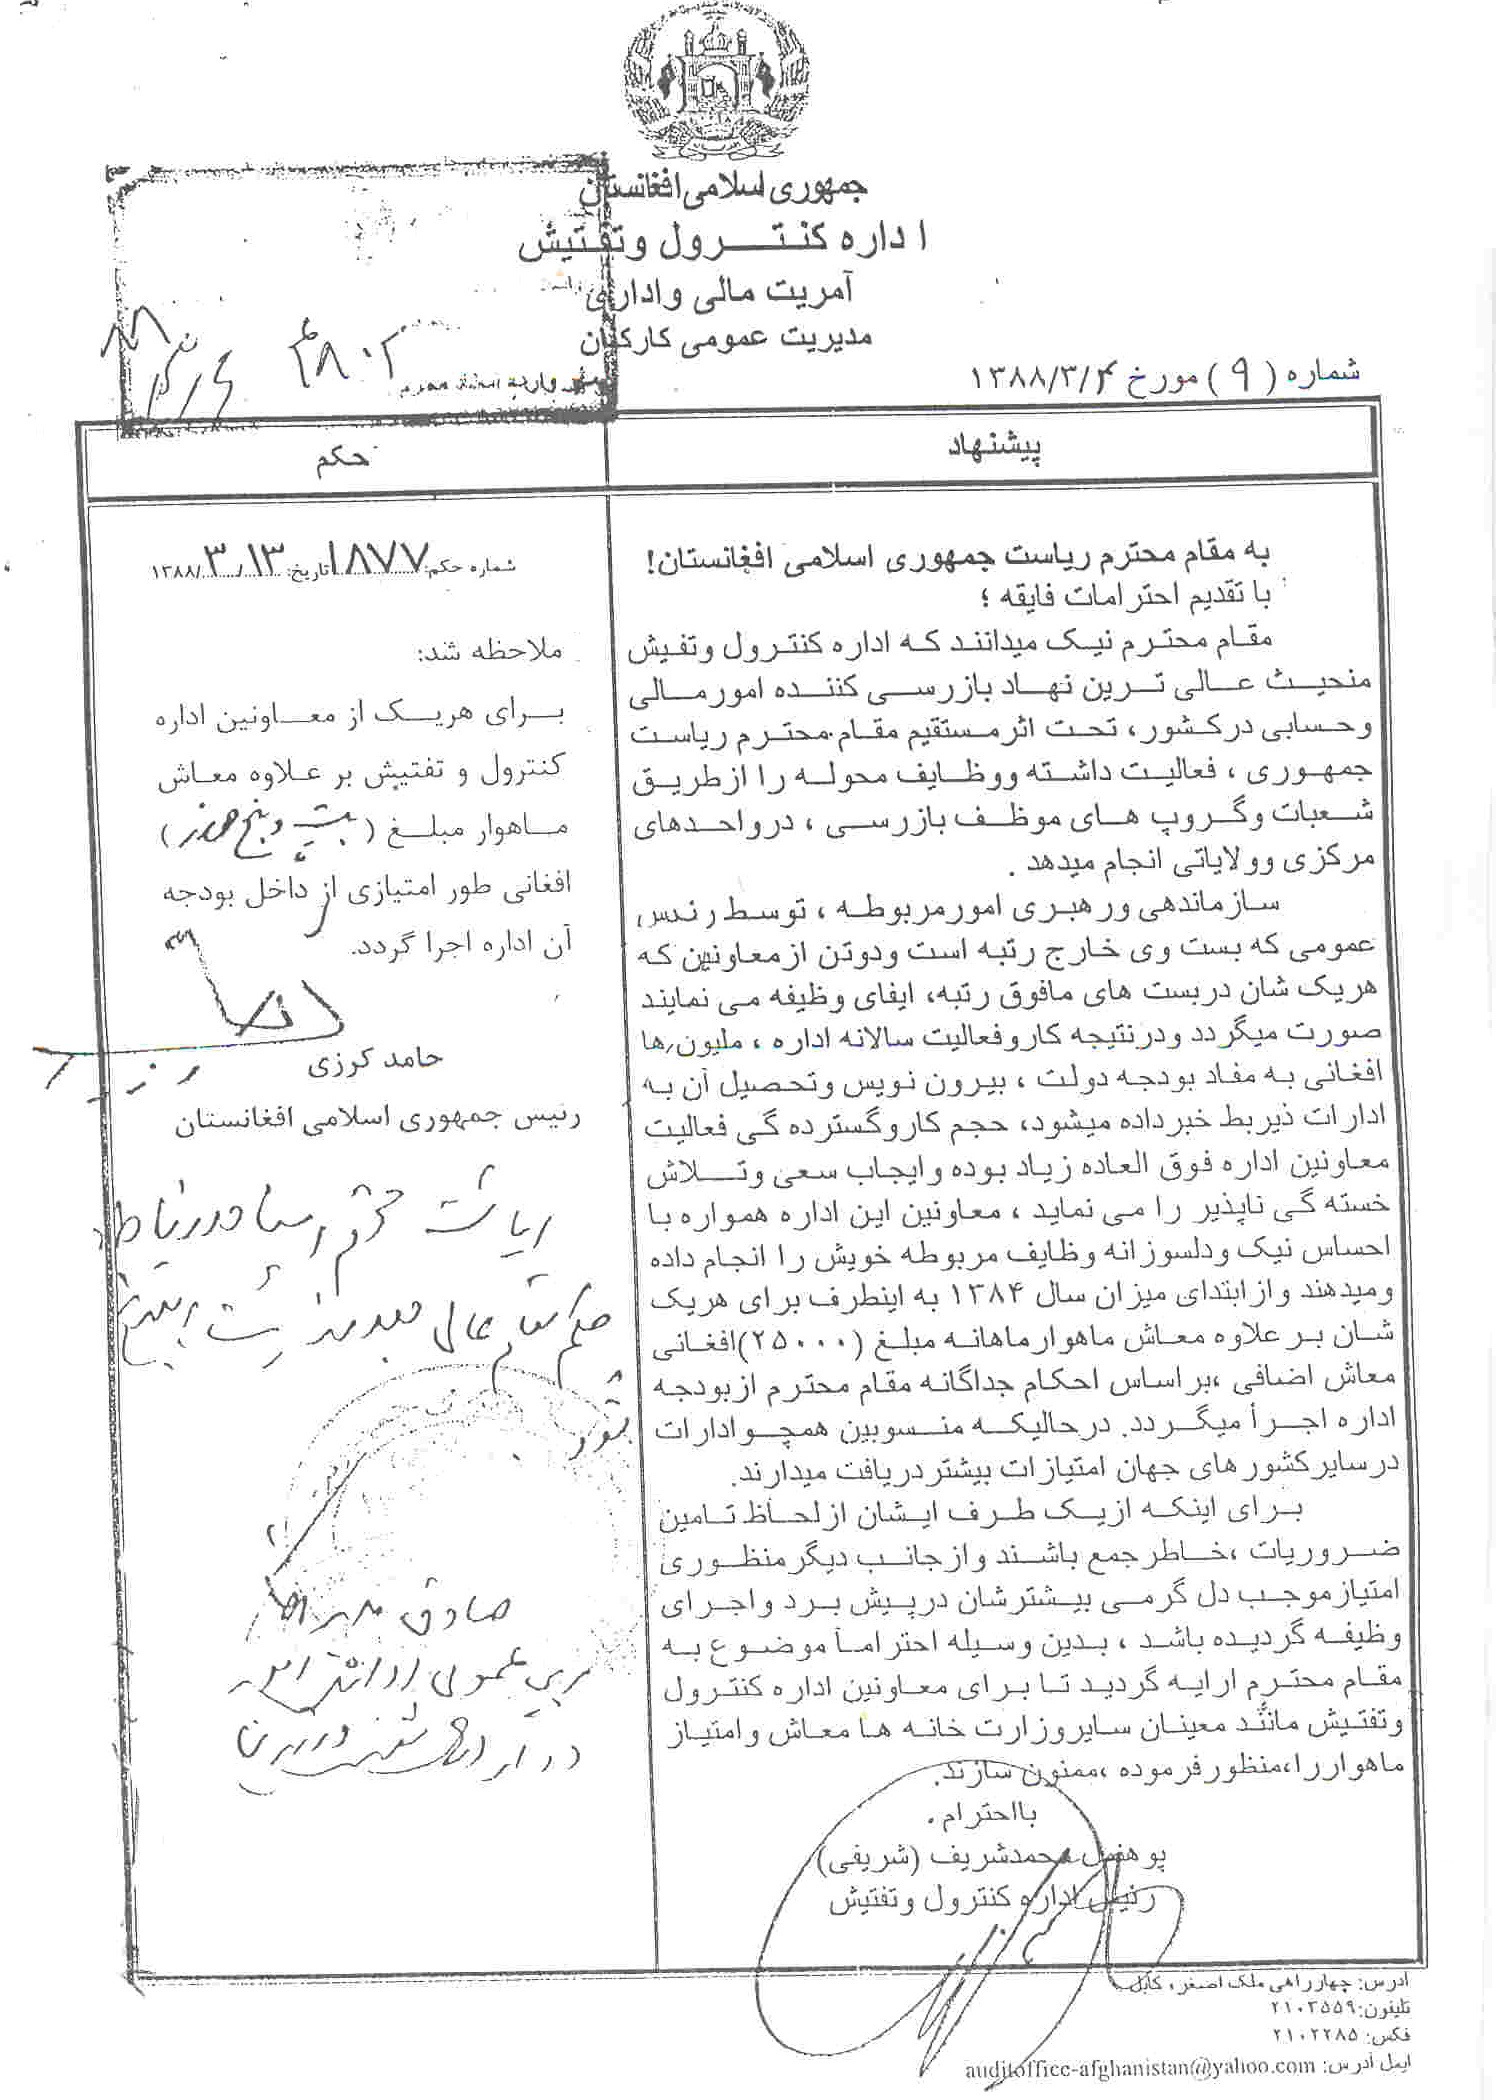 جمهوری اسلامی افغانستان
اداره کنترول وتفتیش
آمریت مالی واداری
مدیریت عمومی کارکنان
شماره (۹) مورخ ۱۳۸۸/۳/۴
پیشنهاد
به مقام محترم ریاست جمهوری اسلامی افغانستان!
با تقدیم احترامات فایقه ؛
مقام محترم نیک میدانند که اداره کنترول وتفیش
منحیث عالی ترین نهاد بازرسی کننده امورمالی
وحسابی درکشور، تحت اثرمستقیم مقام محترم ریاست
جمهوری ، فعالیت داشته ووظایف محوله را ازطریق
شعبات وگروپ های موظف بازرسی ، درواحدهای
مرکزی وولایاتی انجام میدهد .
سازماندهی ورهبری امورمربوطه ، توسط رئیس
عمومی که بست وی خارج رتبه است ودوتن ازمعاونین که
هریک شان دربست های مافوق رتبه، ایفای وظیفه می نمایند
صورت میگردد ودرنتیجه کاروفعالیت سالانه اداره ، ملیون ها
افغانی به مفاد بودجه دولت ، بیرون نویس وتحصیل آن به
ادارات ذیربط خبرداده میشود، حجم کاروگسترده گی فعالیت
معاونین اداره فوق العاده زیاد بوده وایجاب سعی وتلاش
خسته گی ناپذیر را می نماید ، معاونین این اداره همواره با
احساس نیک ودلسوزانه وظایف مربوطه خویش را انجام داده
ومیدهند وازابتدای میزان سال ۱۳۸۴ به اینطرف برای هریک
شان بر علاوه معاش ماهوارماهانه مبلغ (۲۵۰۰۰)افغانی
معاش اضافی ،بر اساس احکام جداگانه مقام محترم ازبودجه
اداره اجرأ میگردد. درحالیکه منسوبین همچو ادارات
درسایرکشورهای جهان امتیازات بیشتردریافت میدارند.
برای اینکه ازیک طرف ایشان ازلحاظ تامین
ضروریات ،خاطرجمع باشند وازجانب دیگرمنظوری
امتیازموجب دل گرمی بیشترشان درپیش برد واجرای
وظیفه گردیده باشد ، بدین وسیله احتراماً موضوع به
مقام محترم ارایه گردید تا برای معاونین اداره کنترول
وتفتیش مانند معینان سایروزارت خانه ها معاش وامتیاز
ماهواررا،منظورفرموده ،ممنون سازند.
بااحترام .
پوهنمل محمدشریف (شریفی)
رئیس اداره کنترول وتفتیش
حکم
شماره حکم: ۱۸۷۷ تاریخ: ۱۳۸۸/۳/۱۳
ملاحظه شد:
برای هریک از معاونین اداره
کنترول و تفتیش بر علاوه معاش
ماهوار مبلغ (بیست وپنج هزار)
افغانی طور امتیازی از داخل بودجه
آن اداره اجرا گردد.
حامد کرزی
رئیس جمهوری اسلامی افغانستان
آدرس: چهارراهی ملک اصغر، کابل
تلیفون: ۲۱۰۳۵۵۹
فکس: ۲۱۰۲۲۸۵
ایمل آدرس: auditoffice-afghanistan@yahoo.com